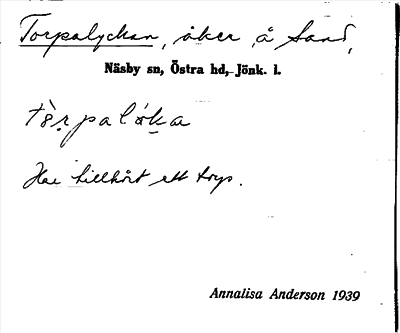 Torpalyckan, åker, å Sand,
Näsby sn, Östra hd, Jönk. l.
tòrpalóka
Har tillhört ett torp.
Annalisa Anderson 1939